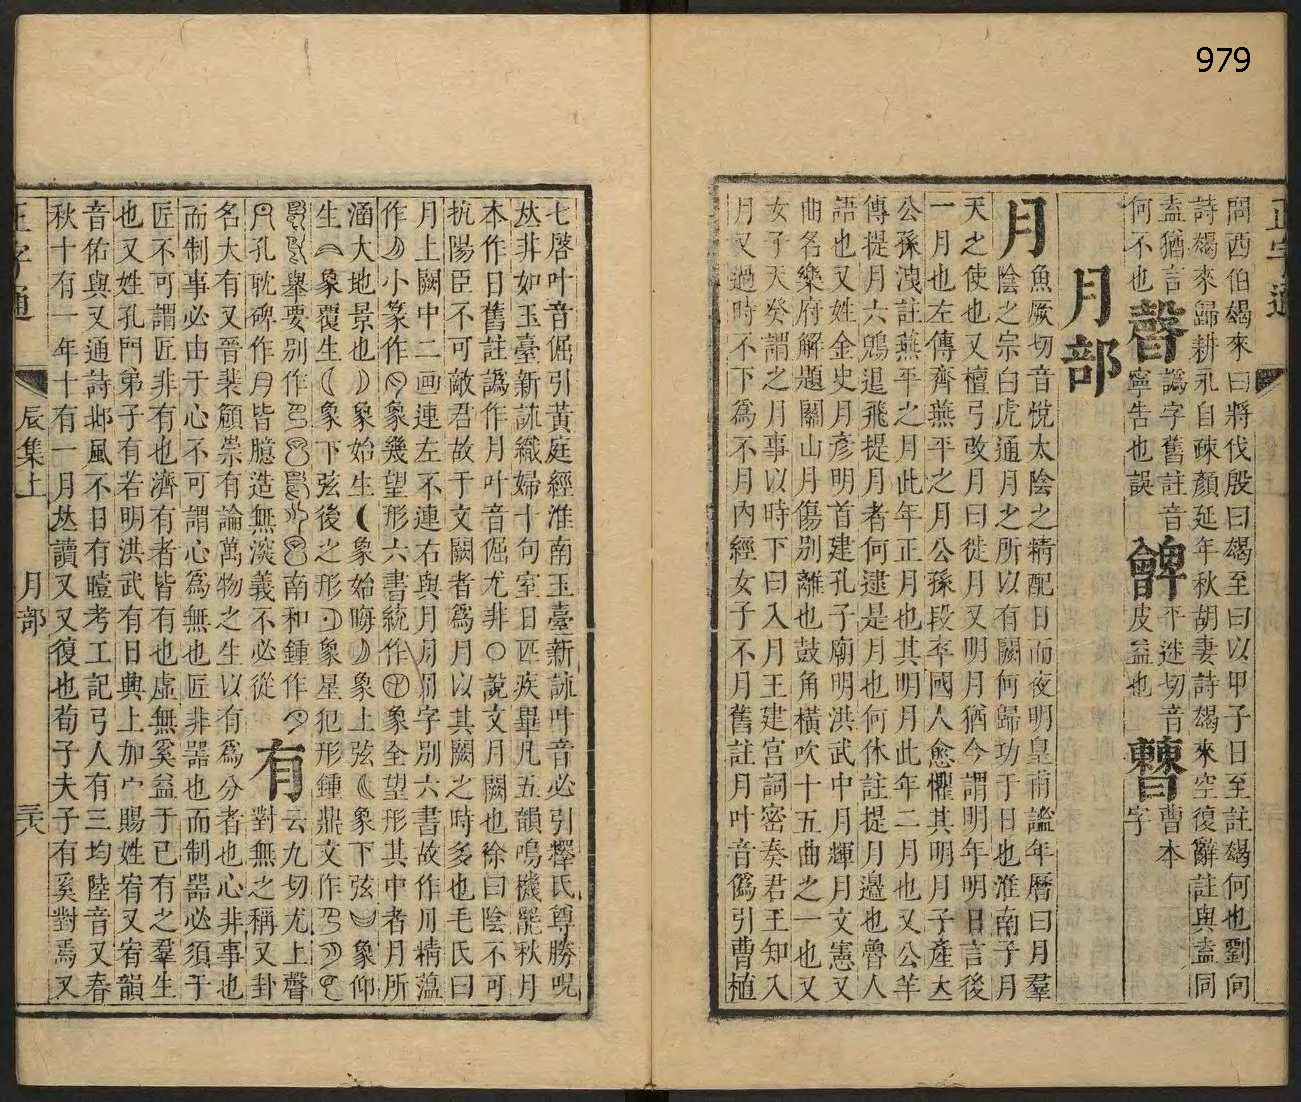 979
正字通
問西伯朅來曰將伐殷曰朅至曰以甲子日至註朅何也劉向
詩朅來歸耕永自疎顏延年秋胡妻詩朅來空復辭註與盍同
盍猶言
何不也
譌字舊註音
寧告也誤
平迷切音
皮益也
曹本
字
月部
月
魚厥切音悅太陰之精配日而夜明皇甫謐年曆曰月羣
陰之宗白虎通月之所以有闕何歸功于日也淮南子月
天之使也又檀弓改月曰徙月又明月猶今謂明年明日言後
一月也左傳齊燕平之月公孫段卒國人愈懼其明月子產立
公孫洩註燕平之月此年正月也其明月此年二月也又公羊
傳提月六鶂退飛提月者何逮是月也何休註提月邊也魯人
語也又姓金史月彥明首建孔子廟明洪武中月輝月文憲又
曲名樂府解題關山月傷別離也鼓角橫吹十五曲之一也又
女子天癸謂之月事以時下曰入月王建宮詞密奏君王知入
月又過時不下爲不月內經女子不月舊註月叶音僞引曹植
七啓叶音倔引黃庭經淮南玉臺新詠叶音必引釋氏尊勝呪
𠀤非如玉臺新詠織婦十句室日匹疾畢凡五韻鳴機罷秋月
本作日舊註譌作月叶音倔尤非○說文月闕也徐曰陰不可
抗陽臣不可敵君故于文闕者爲月以其闕之時多也毛氏曰
月上闕中二画連左不連右與月⺼⺝字別六書故作月精蕰
作 小篆作 象幾望形六書統作 象全望形其中者月所
涵大地景也 象始生 象始晦 象上弦 象下弦 象仰
生 象覆生 象下弦後之形 象星犯形鍾鼎文作
舉要別作 南和鍾作
孔耽碑作 皆臆造無深義不必從
有
云九切尤上聲
對無之稱又卦
名大有又晉裴頠崇有論萬物之生以有爲分者也心非事也
而制事必由于心不可謂心爲無也匠非器也而制器必須于
匠不可謂匠非有也濟有者皆有也虛無奚益于已有之羣生
也又姓孔門弟子有若明洪武有日興上加宀賜姓宥又宥韻
音佑與又通詩邶風不日有曀考工記弓人有三均陸音又春
秋十有一年十有一月𠀤讀又又復也荀子夫子有奚對焉又
正字通
辰集上
月部
三六